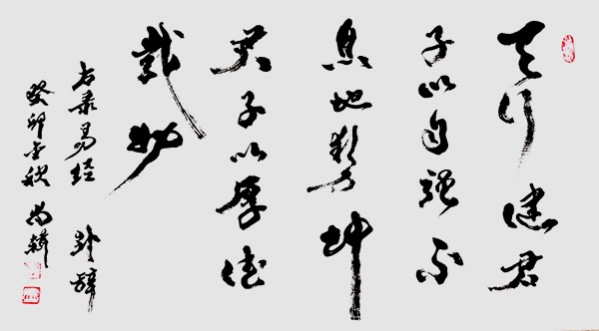 天行健君
子以自强不
息地势坤
君子以厚德
载物
右录易经卦辞
癸卯金秋